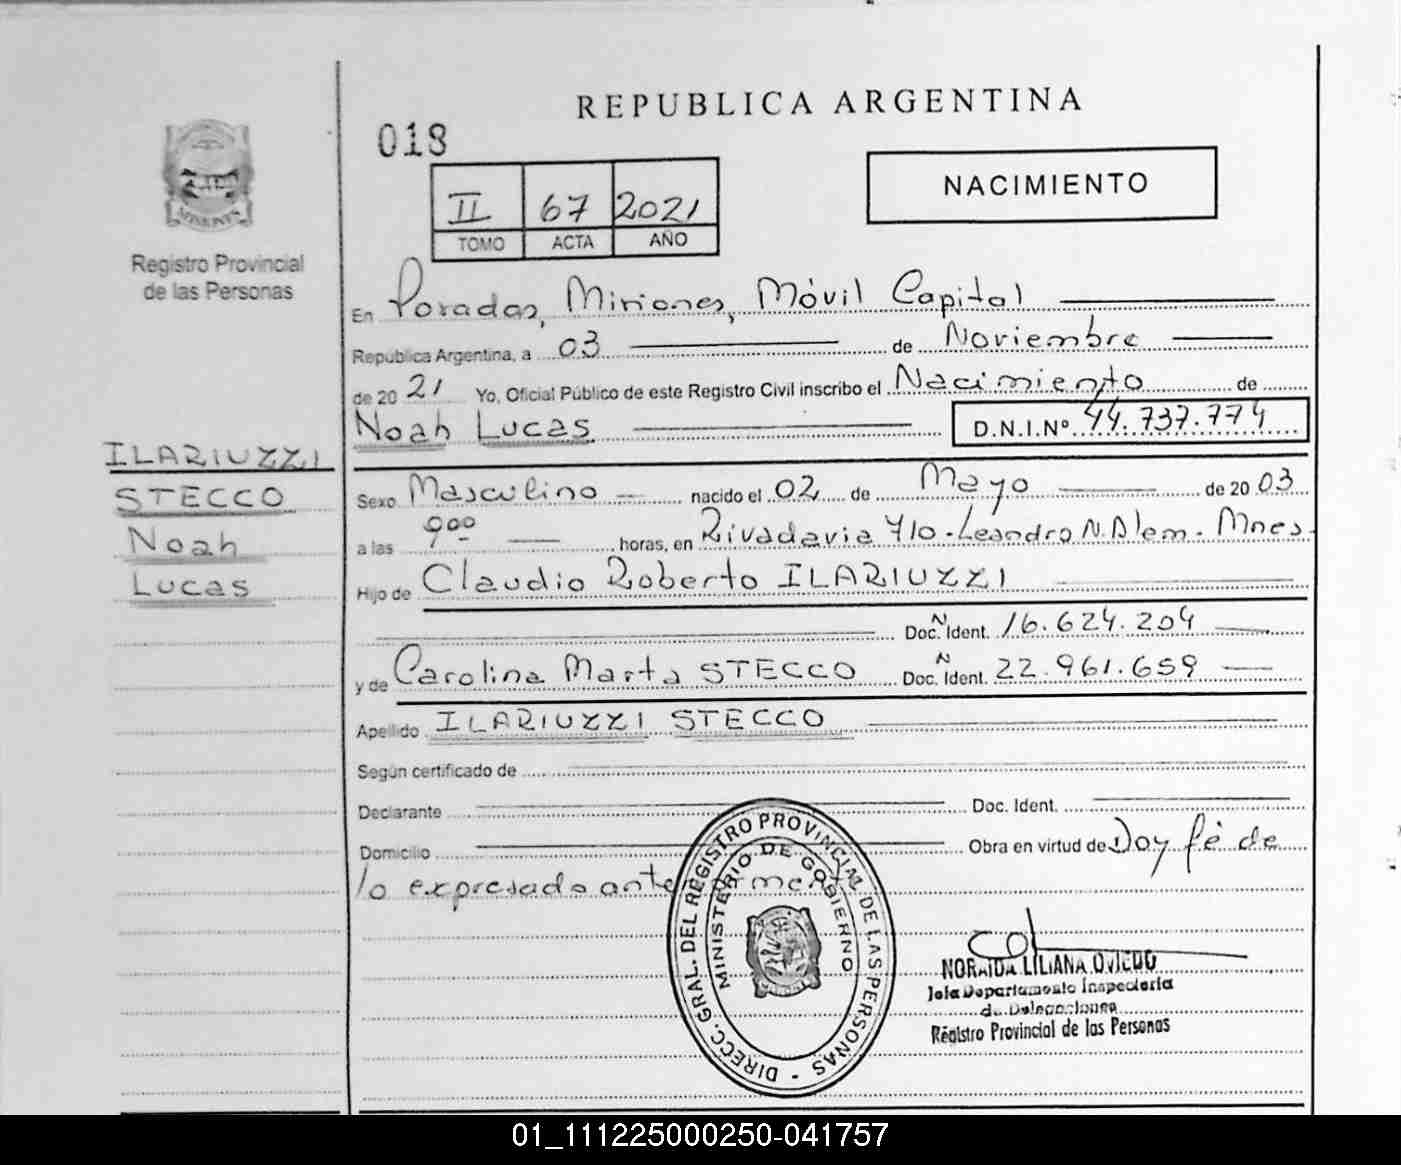 REPUBLICA ARGENTINA
018
NACIMIENTO
II 67 2021
TOMO ACTA AÑO
MISIONES
Registro Provincial
de las Personas
En Posadas, Misiones, Móvil Capital
Republica Argentina, a 03 de Noviembre
de 20 21 Yo, Oficial Público de este Registro Civil inscribo el Nacimiento de
Noah Lucas D.N.I.Nº 44.737.774
ILARIUZZI
STECCO
Noah
Lucas
Sexo Masculino nacido el 02 de Mayo de 20 03
a las 9:00 horas, en Rivadavia 710 - Leandro N. Alem - Mnes.
Hijo de Claudio Roberto ILARIUZZI
Doc. Ident. N 16.624.204
y de Carolina Marta STECCO Doc. Ident. N 22.961.659
Apellido ILARIUZZI STECCO
Según certificado de
Declarante Doc. Ident.
Domicilio Obra en virtud de Doy fé de
lo expresado anteriormente
DIRECC. GRAL. DEL REGISTRO PROVINCIAL DE LAS PERSONAS -
MINISTERIO DE GOBIERNO
NORAIDA LILIANA OVIEDO
Jefa Departamento Inspectoria
de Delegaciones
Registro Provincial de las Personas
01_111225000250-041757